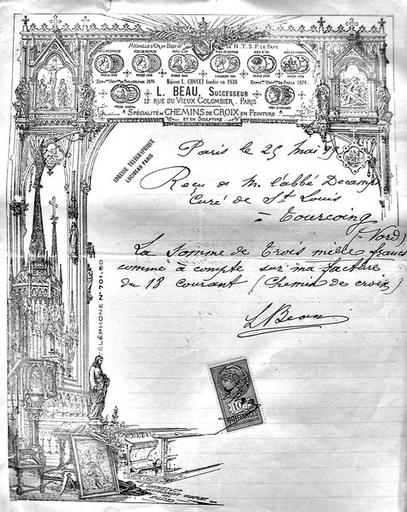 MÉDAILLE D'OR ET BREF DE N.T.S.P. LE PAPE
MAISON L. CHOVET FONDÉE EN 1838
L. BEAU, SUCCESSEUR
12 RUE DU VIEUX COLOMBIER. PARIS
SPÉCIALITÉ DE CHEMINS DE CROIX EN PEINTURE
ET EN SCULPTURE
ADRESSE TÉLÉGRAPHIQUE
LUCBEAU PARIS
TÉLÉPHONE N° 701-50
Paris le 25 Mai
Recu de M. l'abbé Decamp
Curé de St Louis
à Tourcoing
(Nord)
La somme de Trois mille francs
comme à compte sur ma facture
du 18 courant (Chemin de croix)
L Beau
10